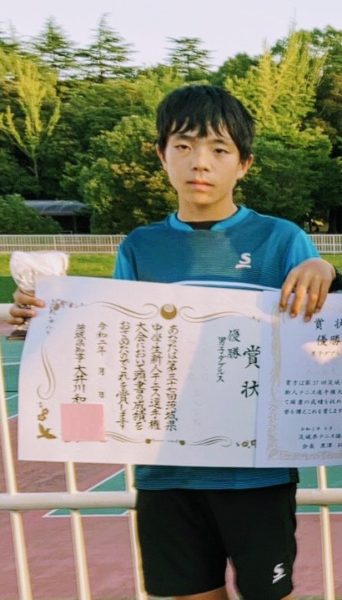 賞状
優勝
男子ダブルス
あなたは第三十七回茨城県
中学生新人テニス選手権
大会において頭書の成績を
おさめたのでこれを賞します
令和二年 月 日
茨城県知事 大井川 和
賞 状
優勝
男子ダブル
第37回茨城
新人テニス選手権大
て頭書の成績を収め
茨城県テニス協
会長
S
S